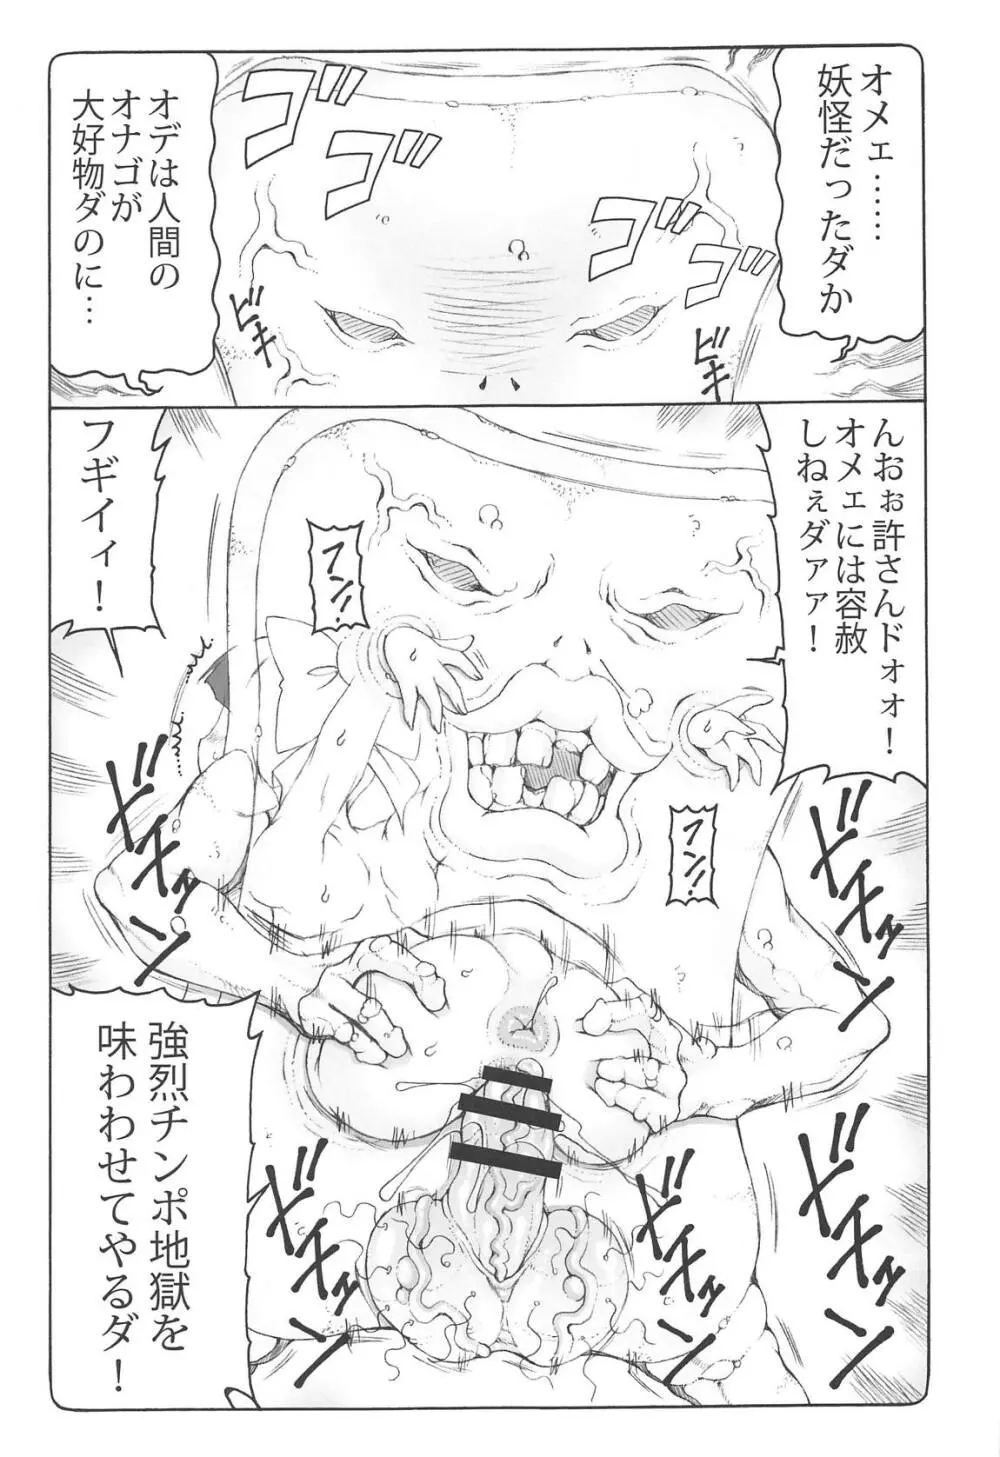 オメェ……
妖怪だったダか
オデは人間の
オナゴが
大好物ダのに…
ゴゴゴ
ゴゴゴ
ビキ
ビキ
んおぉ許さんドォォ！
オメェには容赦
しねぇダァァ！
フギィィ！
フン!!
フン!!
ドチッン
ドチッン
強烈チンポ地獄を
味わわせてやるダ！
ドチッン
ドチッン
ドチッン